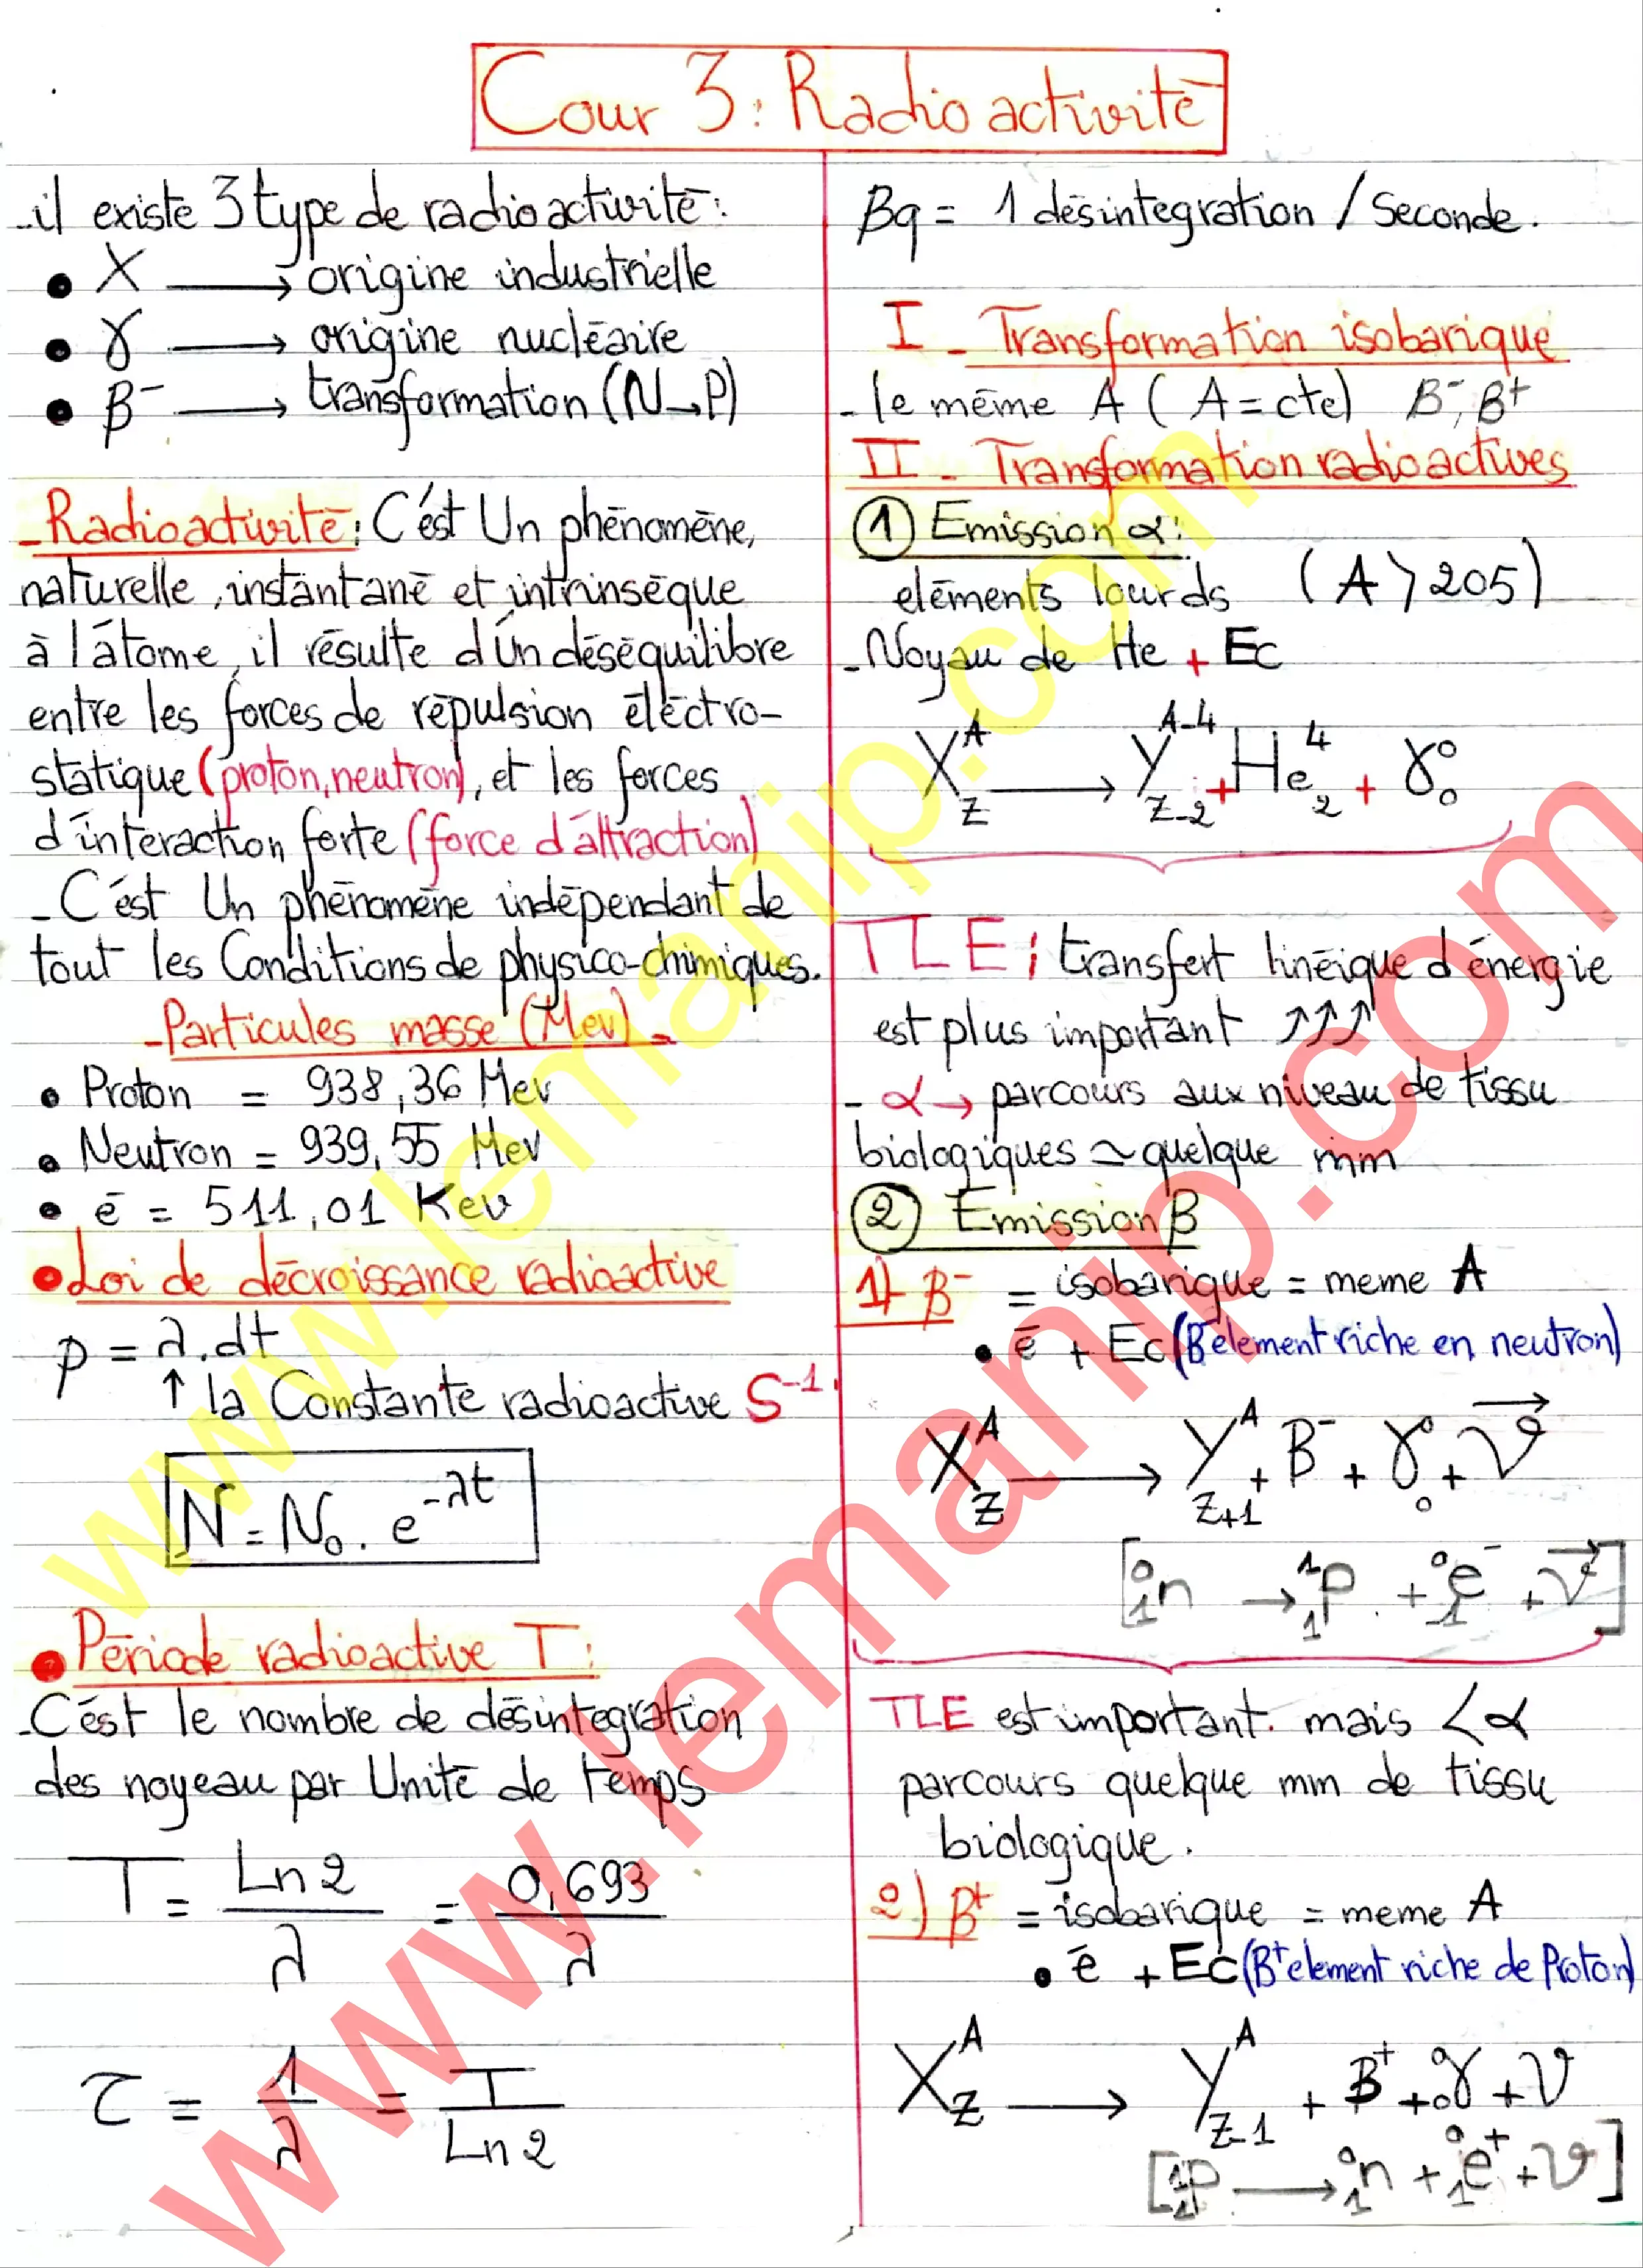 Cour 3 : Radioactivité
- il existe 3 type de radioactivité :
• X ⟶ origine industrielle
• γ ⟶ origine nucléaire
• β⁻ ⟶ transformation (N→P)
- Radioactivité : C'est Un phénomène,
naturelle, instantané et intrinséque
à l'atome, il résulte d'Un déséquilibre
entre les forces de répulsion éléctro-
statique (proton, neutron), et les forces
d'interaction forte (force d'attraction)
- C'est Un phénomène indépendant de
tout les Conditions de physico-chimiques.
- Particules masse (Mev) -
• Proton = 938,36 Mev
• Neutron = 939,55 Mev
• ē = 511,01 Kev
• Loi de décroissance radioactive
p = λ.dt
↑ la Constante radioactive S⁻¹.
N = N₀ . e^-λt
• Période radioactive T :
- C'est le nombre de désintegration
des noyeau par Unité de temps
T = Ln2/λ = 0,693/λ
τ = 1/λ = T/Ln2
Bq = 1 désintegration / Seconde.
I - Transformation isobarique
- le même A ( A = cte) B⁻, B⁺
II - Transformation radioactives
① Emission α :
eléments lourds (A > 205)
- Noyau de He + Ec
X^A_Z ⟶ Y^A-4_Z-2 + He^4_2 + γ^0_0
TLE ; transfert linéique d'énergie
est plus important ↗↗↗
- α → parcours aux niveau de tissu
biologiques ≃ quelque mm
② Emission β
1) B⁻ = isobarique = meme A
• ē + Ec (B⁻ element riche en neutron)
X^A_Z ⟶ Y^A_Z+1 + B⁻ + γ^0_0 + ν⃗
[^0_1n → ^1_1p + ^0_1e⁻ + ν⃗]
TLE est important. mais < α
parcours quelque mm de tissu
biologique.
2) B⁺ = isobarique = meme A
• ē + Ec (B⁺ element riche de Proton)
X^A_Z ⟶ Y^A_Z-1 + B⁺ + ^0_0γ + ν
[^1_1p ⟶ ^0_1n + ^0_1e⁺ + ν]
www.lemanip.com
www.lemanip.com